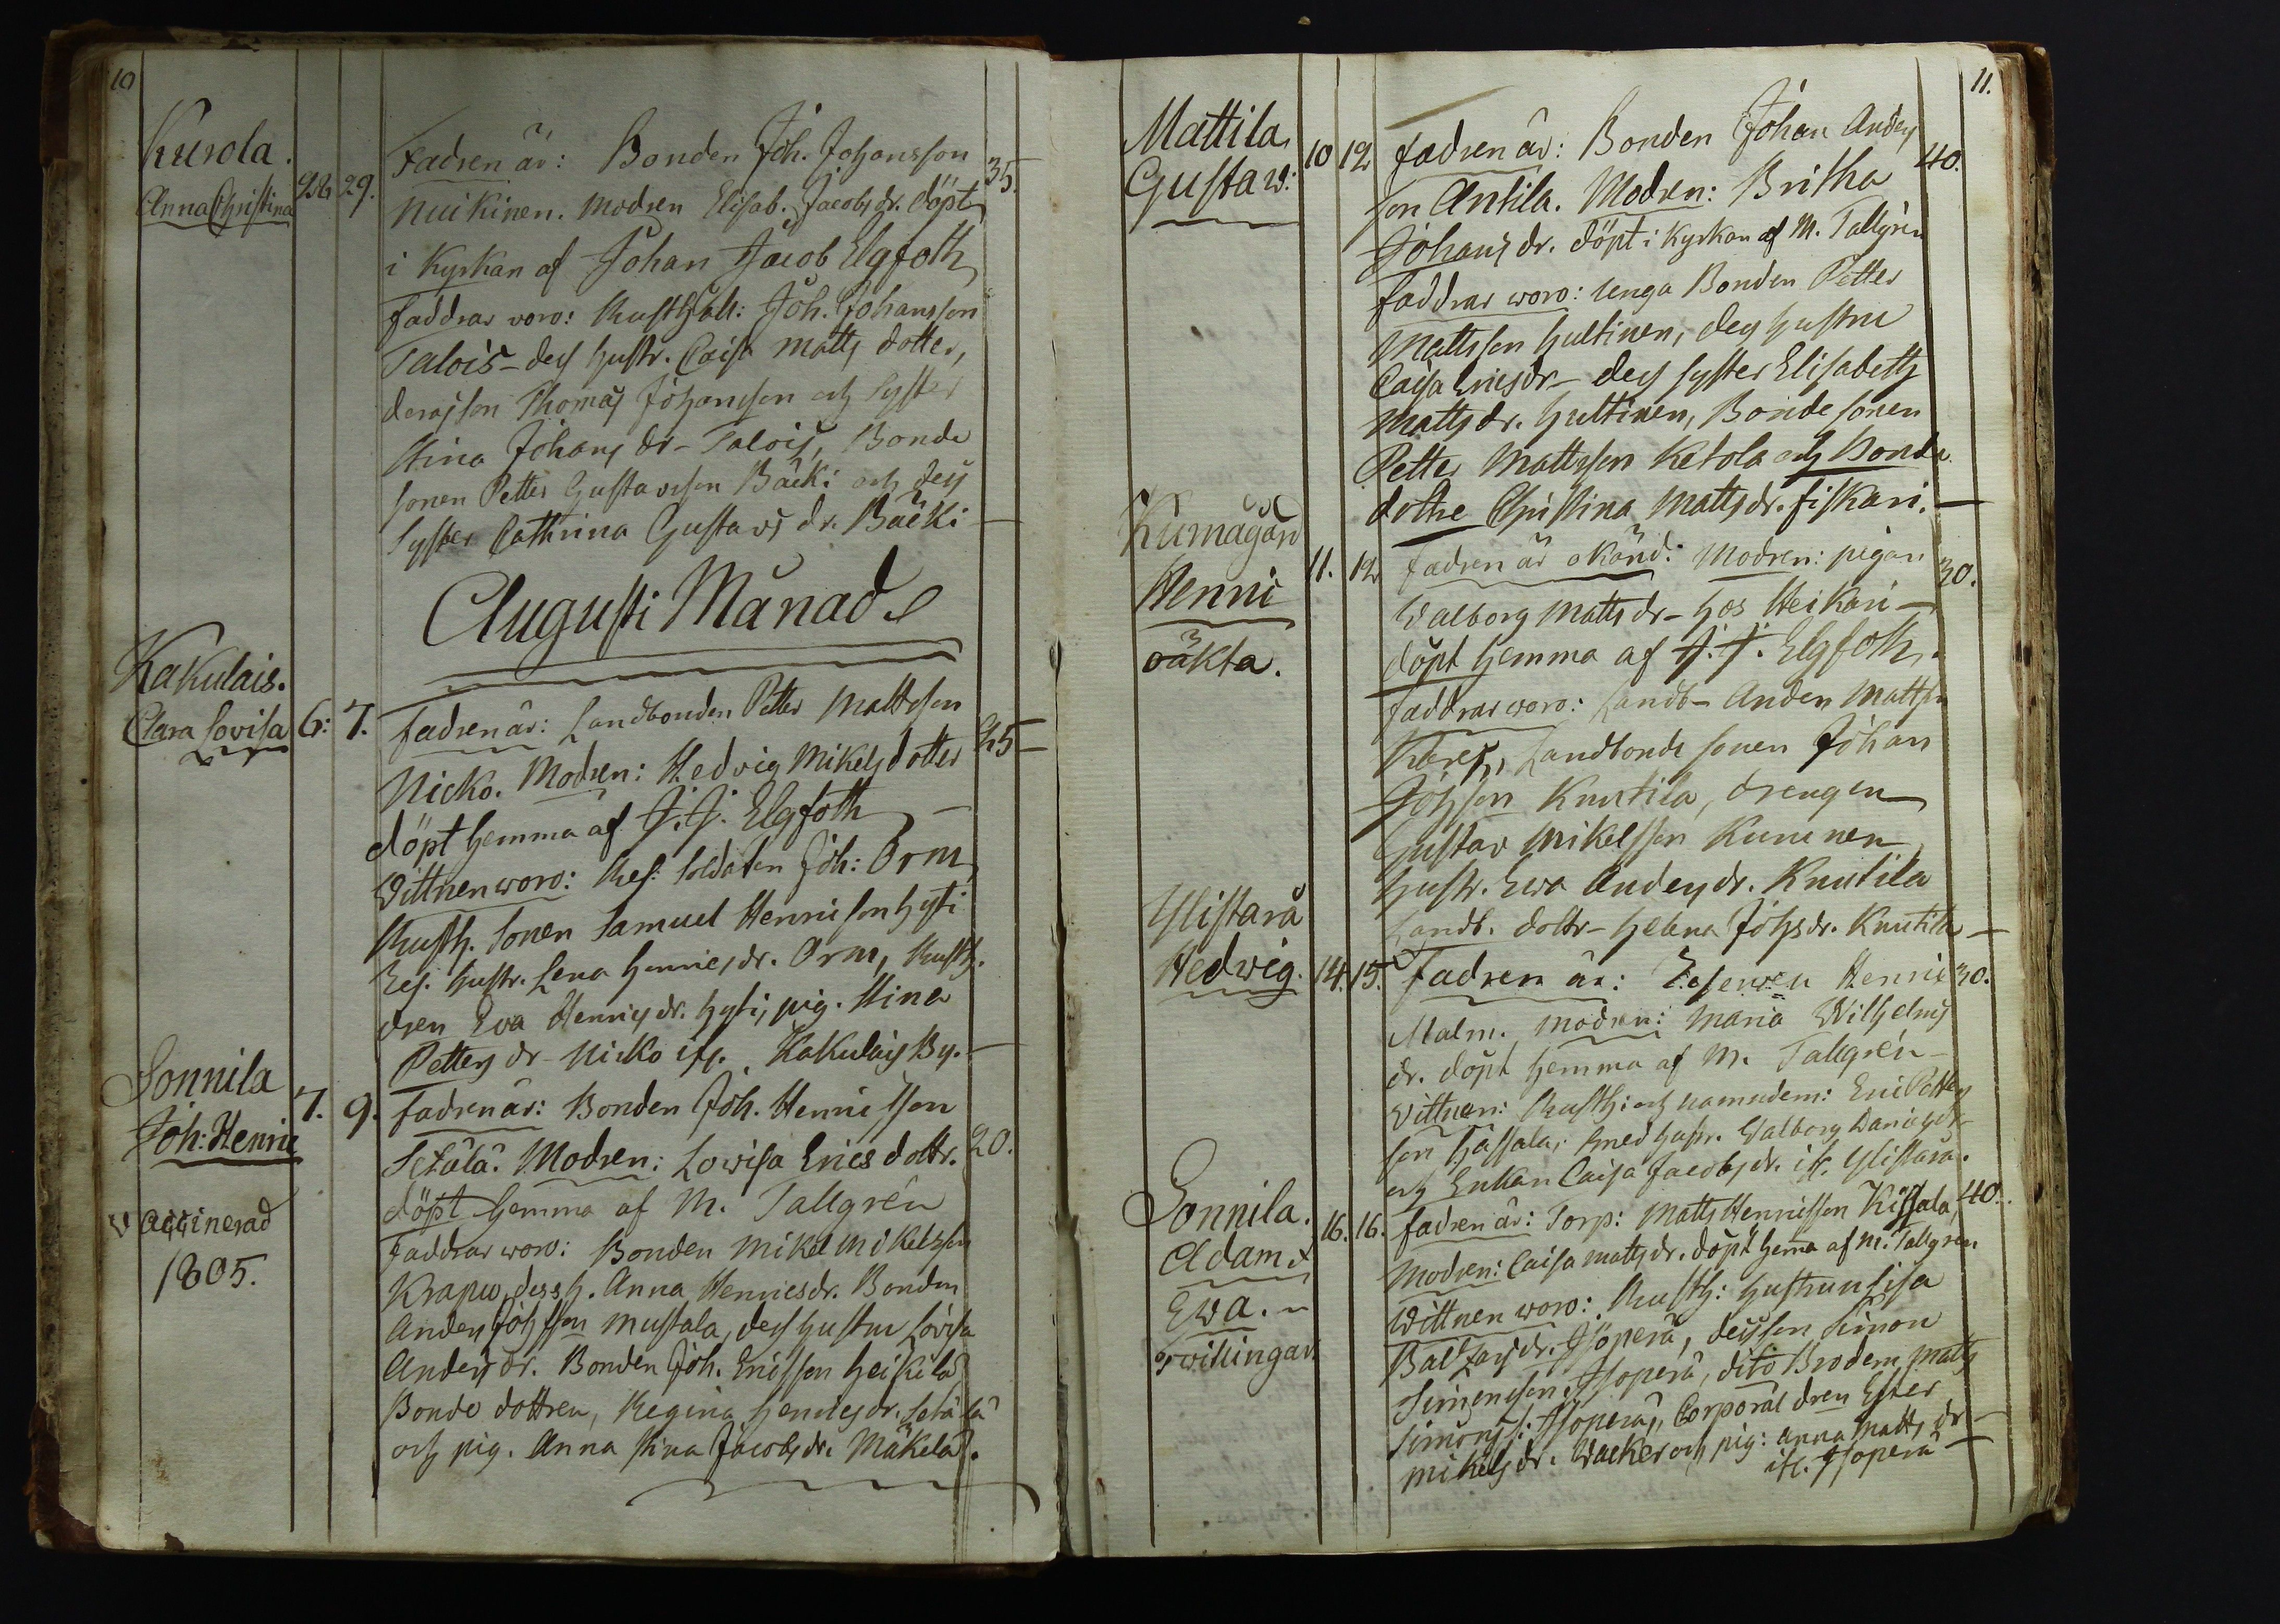 10
Kurola.
Anna Christina
28 29.
Fadren är: Bonden Joh. Johansson
35.
Nuikinen. Modren Elisab. Jacobs dr. döpt
i Kyrkan af Johan Jacob Elgfoth
faddrar woro: Rusthåll: Joh. Johansson
Talois - des hustr. Caisa Matts dotter,
deras son Thomas Johansson och Syster
Stina Johans dr - Talois, Bonde
sonen Petter Gustavsson Bäcki och des
Syster Cathrina Gustavs dr. Bäcki -
Augusti Månad
Kakulais.
Clara Lovisa
6: 7.
fadren är: Landbonden Petter Mattsson
25 -
Nicko. Modren: Hedvig Mikels dotter
döpt hemma af J. J. Elgfoth -
Wittnen woro: Res: Soldaten Joh: Orm
Rusth. Sonen Samuel Henricson Hyti
Res. hustr. Lena Henrics dr. Orm, Rusth.
dren Eva Henrics dr. Hyti, pig. Stina
Petters dr - Nicko if. Kakulais By. -
Sonnila
Joh: Henric
7. 9.
vaccinerad
1805.
Fadren är: Bonden Joh. Henricsson
20.
Setälä. Modren: Lowisa Erics dottr.
döpt hemma af M. Tallgrén
Faddrar woro: Bonden Mikel Mikelsson
Krapu, dess h. Anna Henricsdr. Bonden
Anders Johsson Mustala, des hustru Lovisa
Anders dr. Bonden Joh. Ericsson Heikilä
Bonde dottren, Regina Henrics dr. Setälä
och pig. Anna Stina Jacobs dr. Mäkelä.
11.
Mattila
Gustaw:
10 12
fadren är: Bonden Johan Anders
40.
son Antila. Modren: Britha
Johans dr. döpt i Kyrkan af M. Tallgrén
faddrar woro: unga Bonden Petter
Mattsson Hultinen, des hustru
Caisa Ericsdr - des syster Elisabeth
Matts dr. Hultinen, Bonde sonen
Petter Mattsson Ketola och Bonde
dottre Christina Matts dr. Fiskari. -
Kumagård
Henric
oäkta.
11. 12
fadren är okänd: Modren: pigan
30.
Walborg Matts dr - hos Heikari -
döpt hemma af J. J. Elgfoth.
faddrar woro: Landb - Anders Mattsson
Landbonde sonen Johan
Johsson Knutila, drengen
Gustav Mikelsson Kuninen
hustr. Ewa Anders dr. Knutila
Landb. dottr - Helena Johsdr. Knutila -
Ylistarå
Hedvig.
14. 15.
Fadren är: Reserven Henric
30.
Malm. Modren: Maria Wilhelms
dr. döpt hemma af M. Tallgrén -
Vittnen: Rusth: och namndem: Eric Petters
son Hassala, med hustr. Walborg Daniels dr
och Enkan Caisa Jacobs dr. if. Ylistara.
Sonnila.
Adam &
Ewa.
twillingar.
16. 16.
fadren är: Torp: Matts Henricsson Kissala,
40.
Modren: Caisa Matts dr. döpt hemma af M. Tallgren
Wittnen woro: Rusth: hustrun Lisa
Baltzars dr. Isoperä, des son Simon
Simonsson Isoperä, dito Brodern Matts
Simons: Isoperä, Corporal dren Ester
Mikels dr. Wacker och pig: Anna Matts dr -
if. Isoperä -